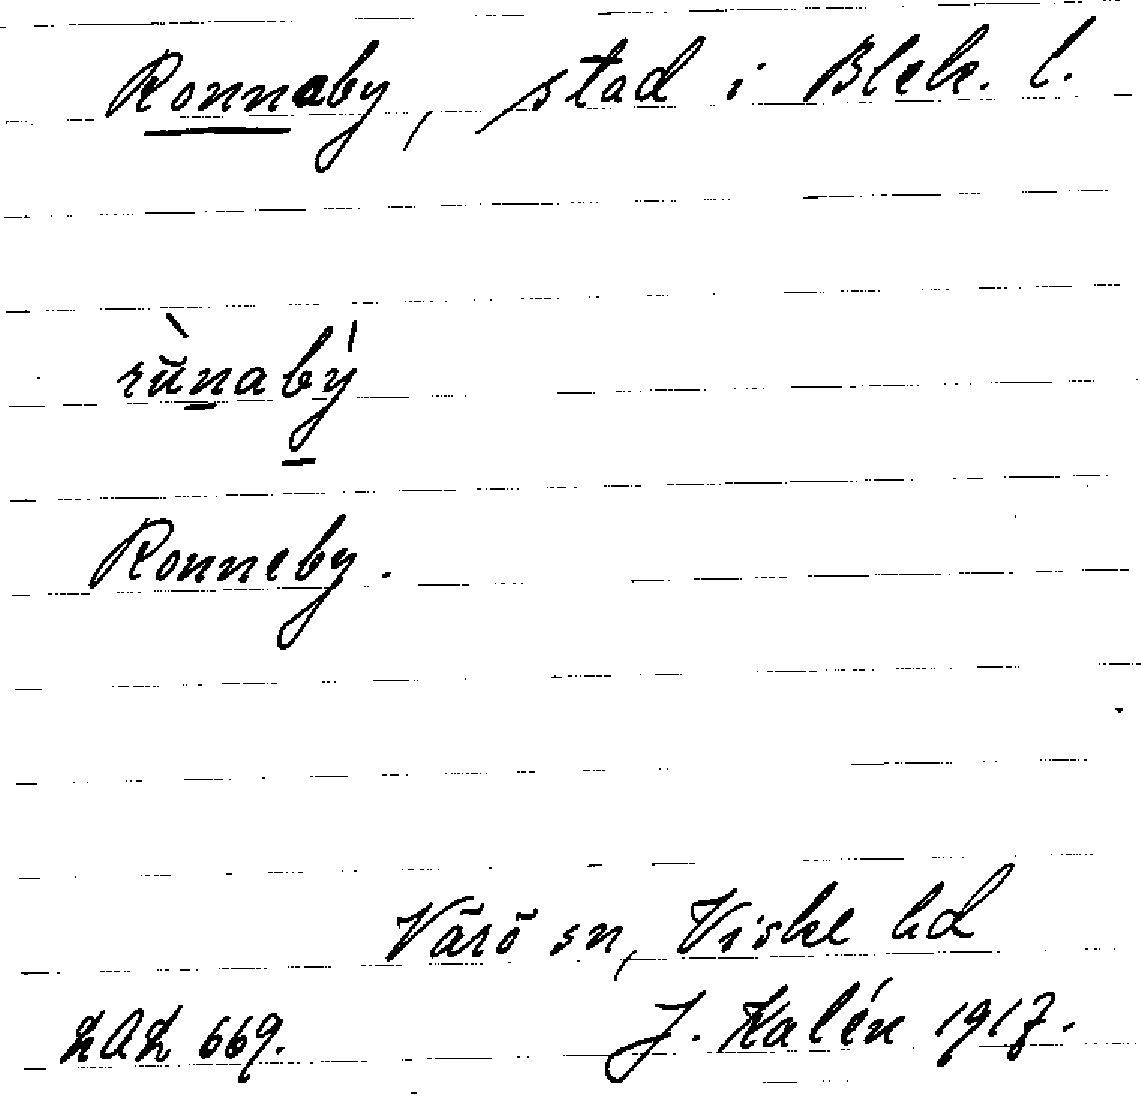 Ronneby, stad i Blek. l.
rùnabý
Ronneby.
Värö sn, Viske hd
LAL 669. J. Kalén 1917.